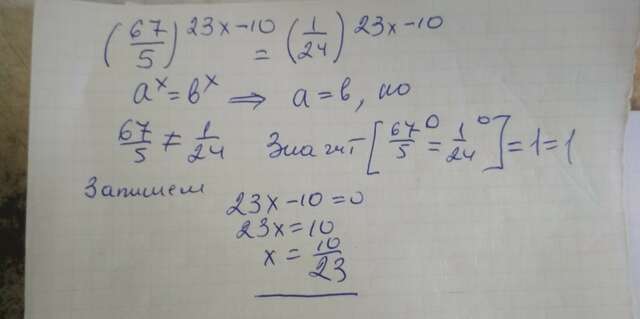 (67/5)^23x−10 = (1/24)^23x−10
a^x = b^x ⇒ a = b, но
67/5 ≠ 1/24 Значит [67/5^0 = 1/24^0] = 1 = 1
Запишем
23x−10=0
23x=10
x = 10/23